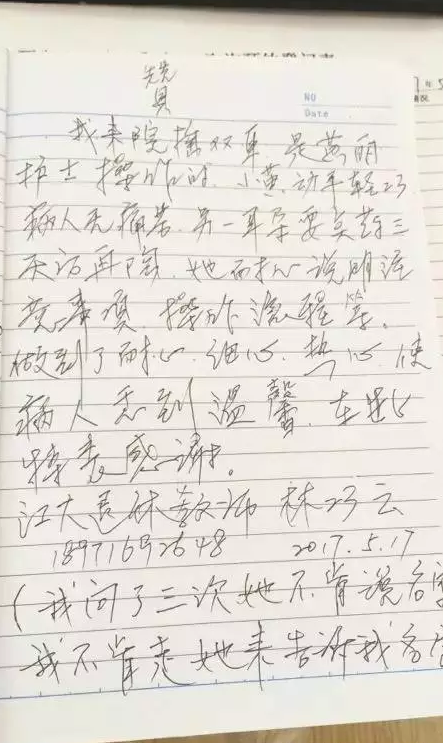 赞
NO
Date
我来院掏双耳是黄丽
护士操作的.小黄动手轻巧
病人无痛苦.另一耳朵要点药三
天后再掏.她而扒心说明注
意事项.操作流程等.
做到了耐心.细心.热心.使
病人感到温馨.在此
特表感谢.
江大退休教师 林巧云
18971692648 2017.5.17
(我问了三次她不肯说名字
我不肯走她来告诉我名字